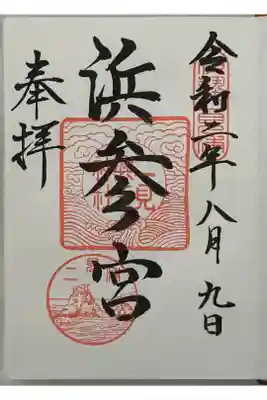 令和三年八月九日
浜参宮
奉拝